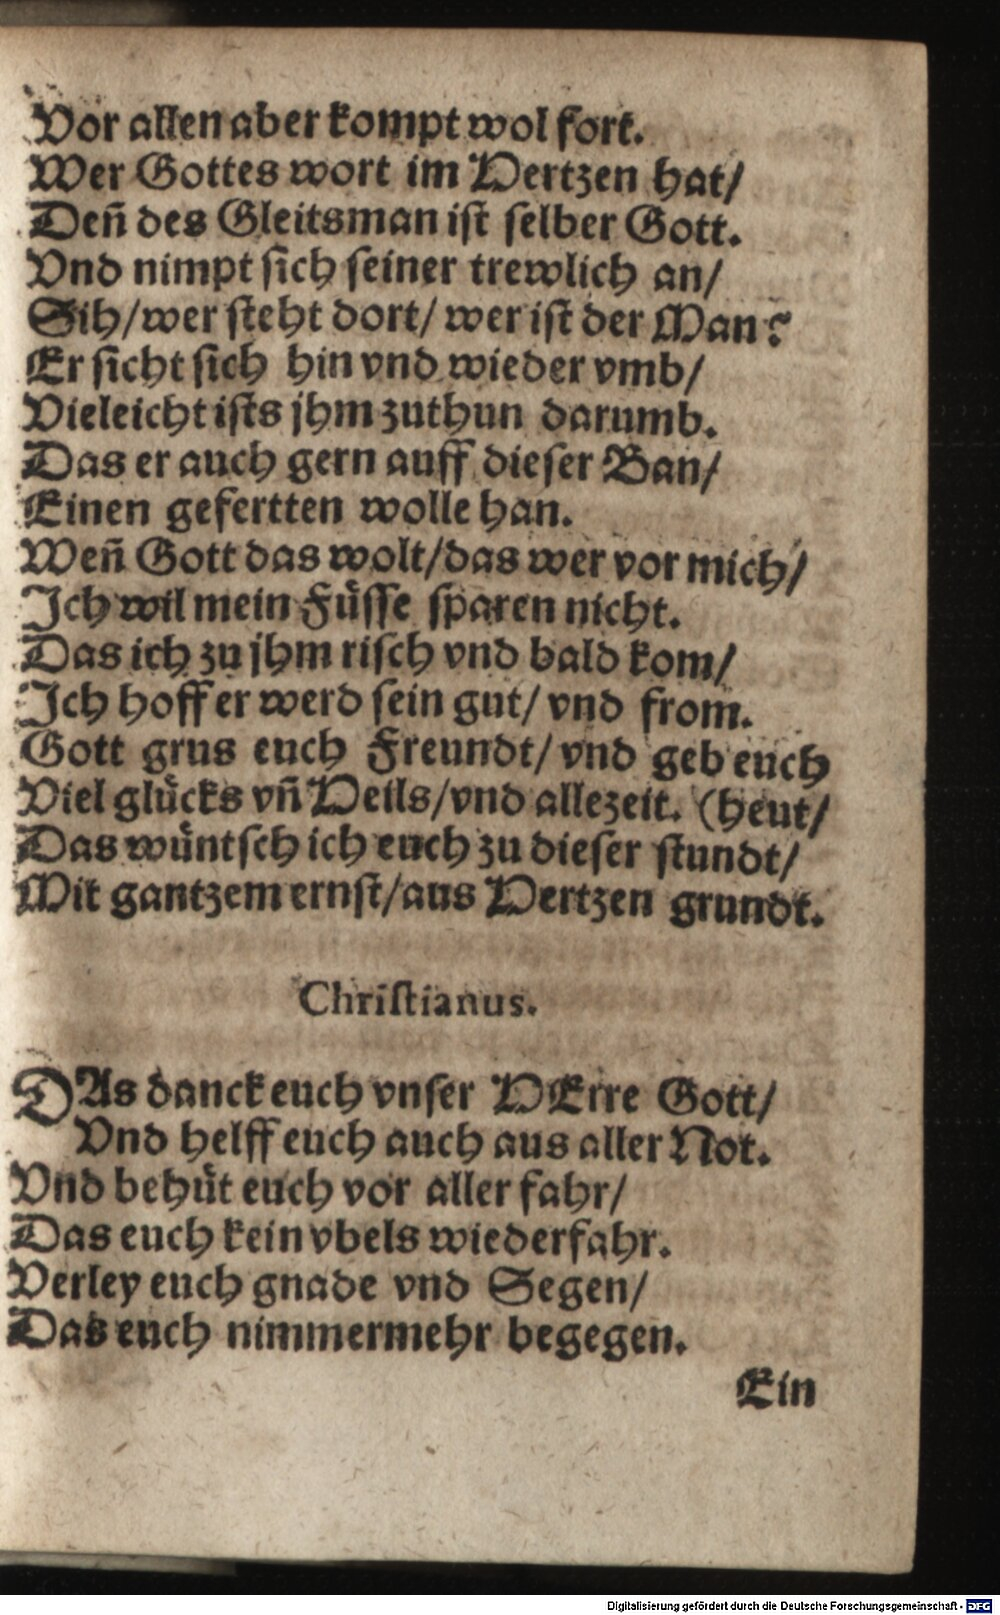 Vor allen aber kompt wol fort.
Wer Gottes wort im Hertzen hat/
Deñ des Gleitsman ist selber Gott.
Vnd nimpt sich seiner trewlich an/
Sih/wer steht dort/ wer ist der Man?
Er sicht sich hin vnd wieder vmb/
Vieleicht ists jhm zuthun darumb.
Das er auch gern auff dieser Ban/
Einen gefertten wolle han.
Weñ Gott das wolt/das wer vor mich/
Ich wil mein Füsse sparen nicht.
Das ich zu jhm risch vnd bald kom/
Ich hoff er werd sein gut/ vnd from.
Gott grus euch Freundt/ vnd geb euch
Viel glücks vñ Heils/vnd allezeit. (heut/
Das wüntsch ich euch zu dieser stundt/
Mit gantzem ernst/aus Hertzen grundt.
Christianus.
DAs danck euch vnser HErre Gott/
Vnd helff euch auch aus aller Not.
Vnd behüt euch vor aller fahr/
Das euch kein vbels wiederfahr.
Verley euch gnade vnd Segen/
Das euch nimmermehr begegen.
Ein
Digitalisierung gefördert durch die Deutsche Forschungsgemeinschaft - DFG